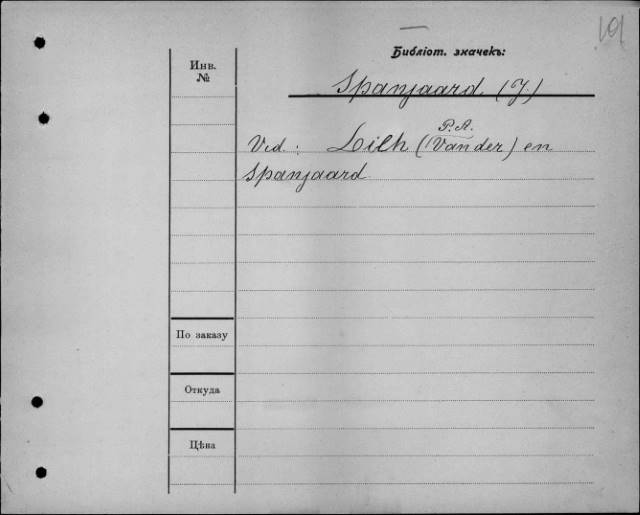 101
Библіот. значекъ:
Инв.
№
Spanjaard (J.)
P.A.
Vid: Lith (Van der) en
Spanjaard.
По заказу
Откуда
Цѣна